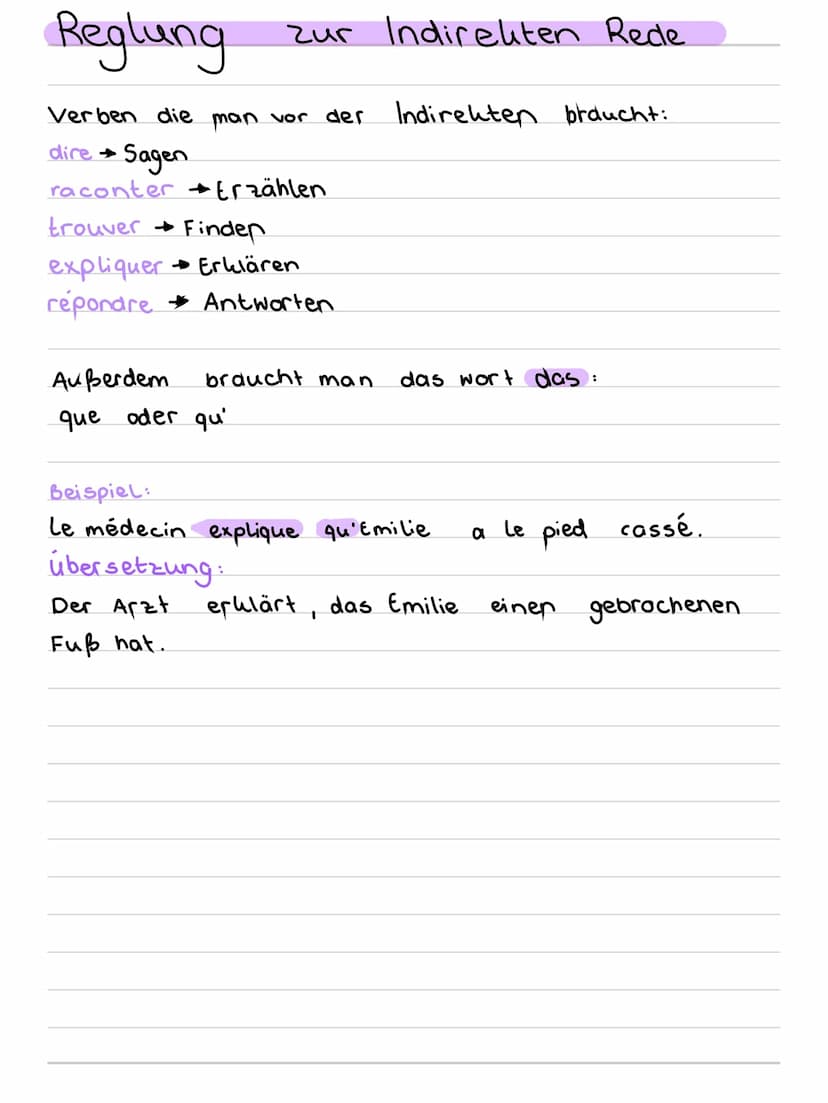 Reglung zur Indirekten Rede
Verben die man vor der Indirekten braucht:
dire → Sagen
raconter → Erzählen
trouver → Finden
expliquer → Erklären
répondre → Antworten
Außerdem braucht man das wort das:
que oder qu'
Beispiel:
Le médecin explique qu'Emilie a le pied cassé.
Übersetzung:
Der Arzt erklärt, das Emilie einen gebrochenen
Fuß hat.